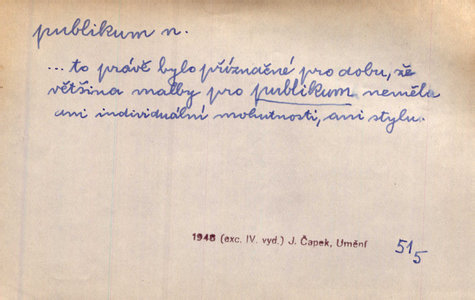 publikum n.
... to právě bylo příznačné pro dobu, že
většina malby pro publikum neměla
ani individuální mohutnosti, ani stylu.
1948 (exc. IV. vyd.) J. Čapek, Umění
51 5